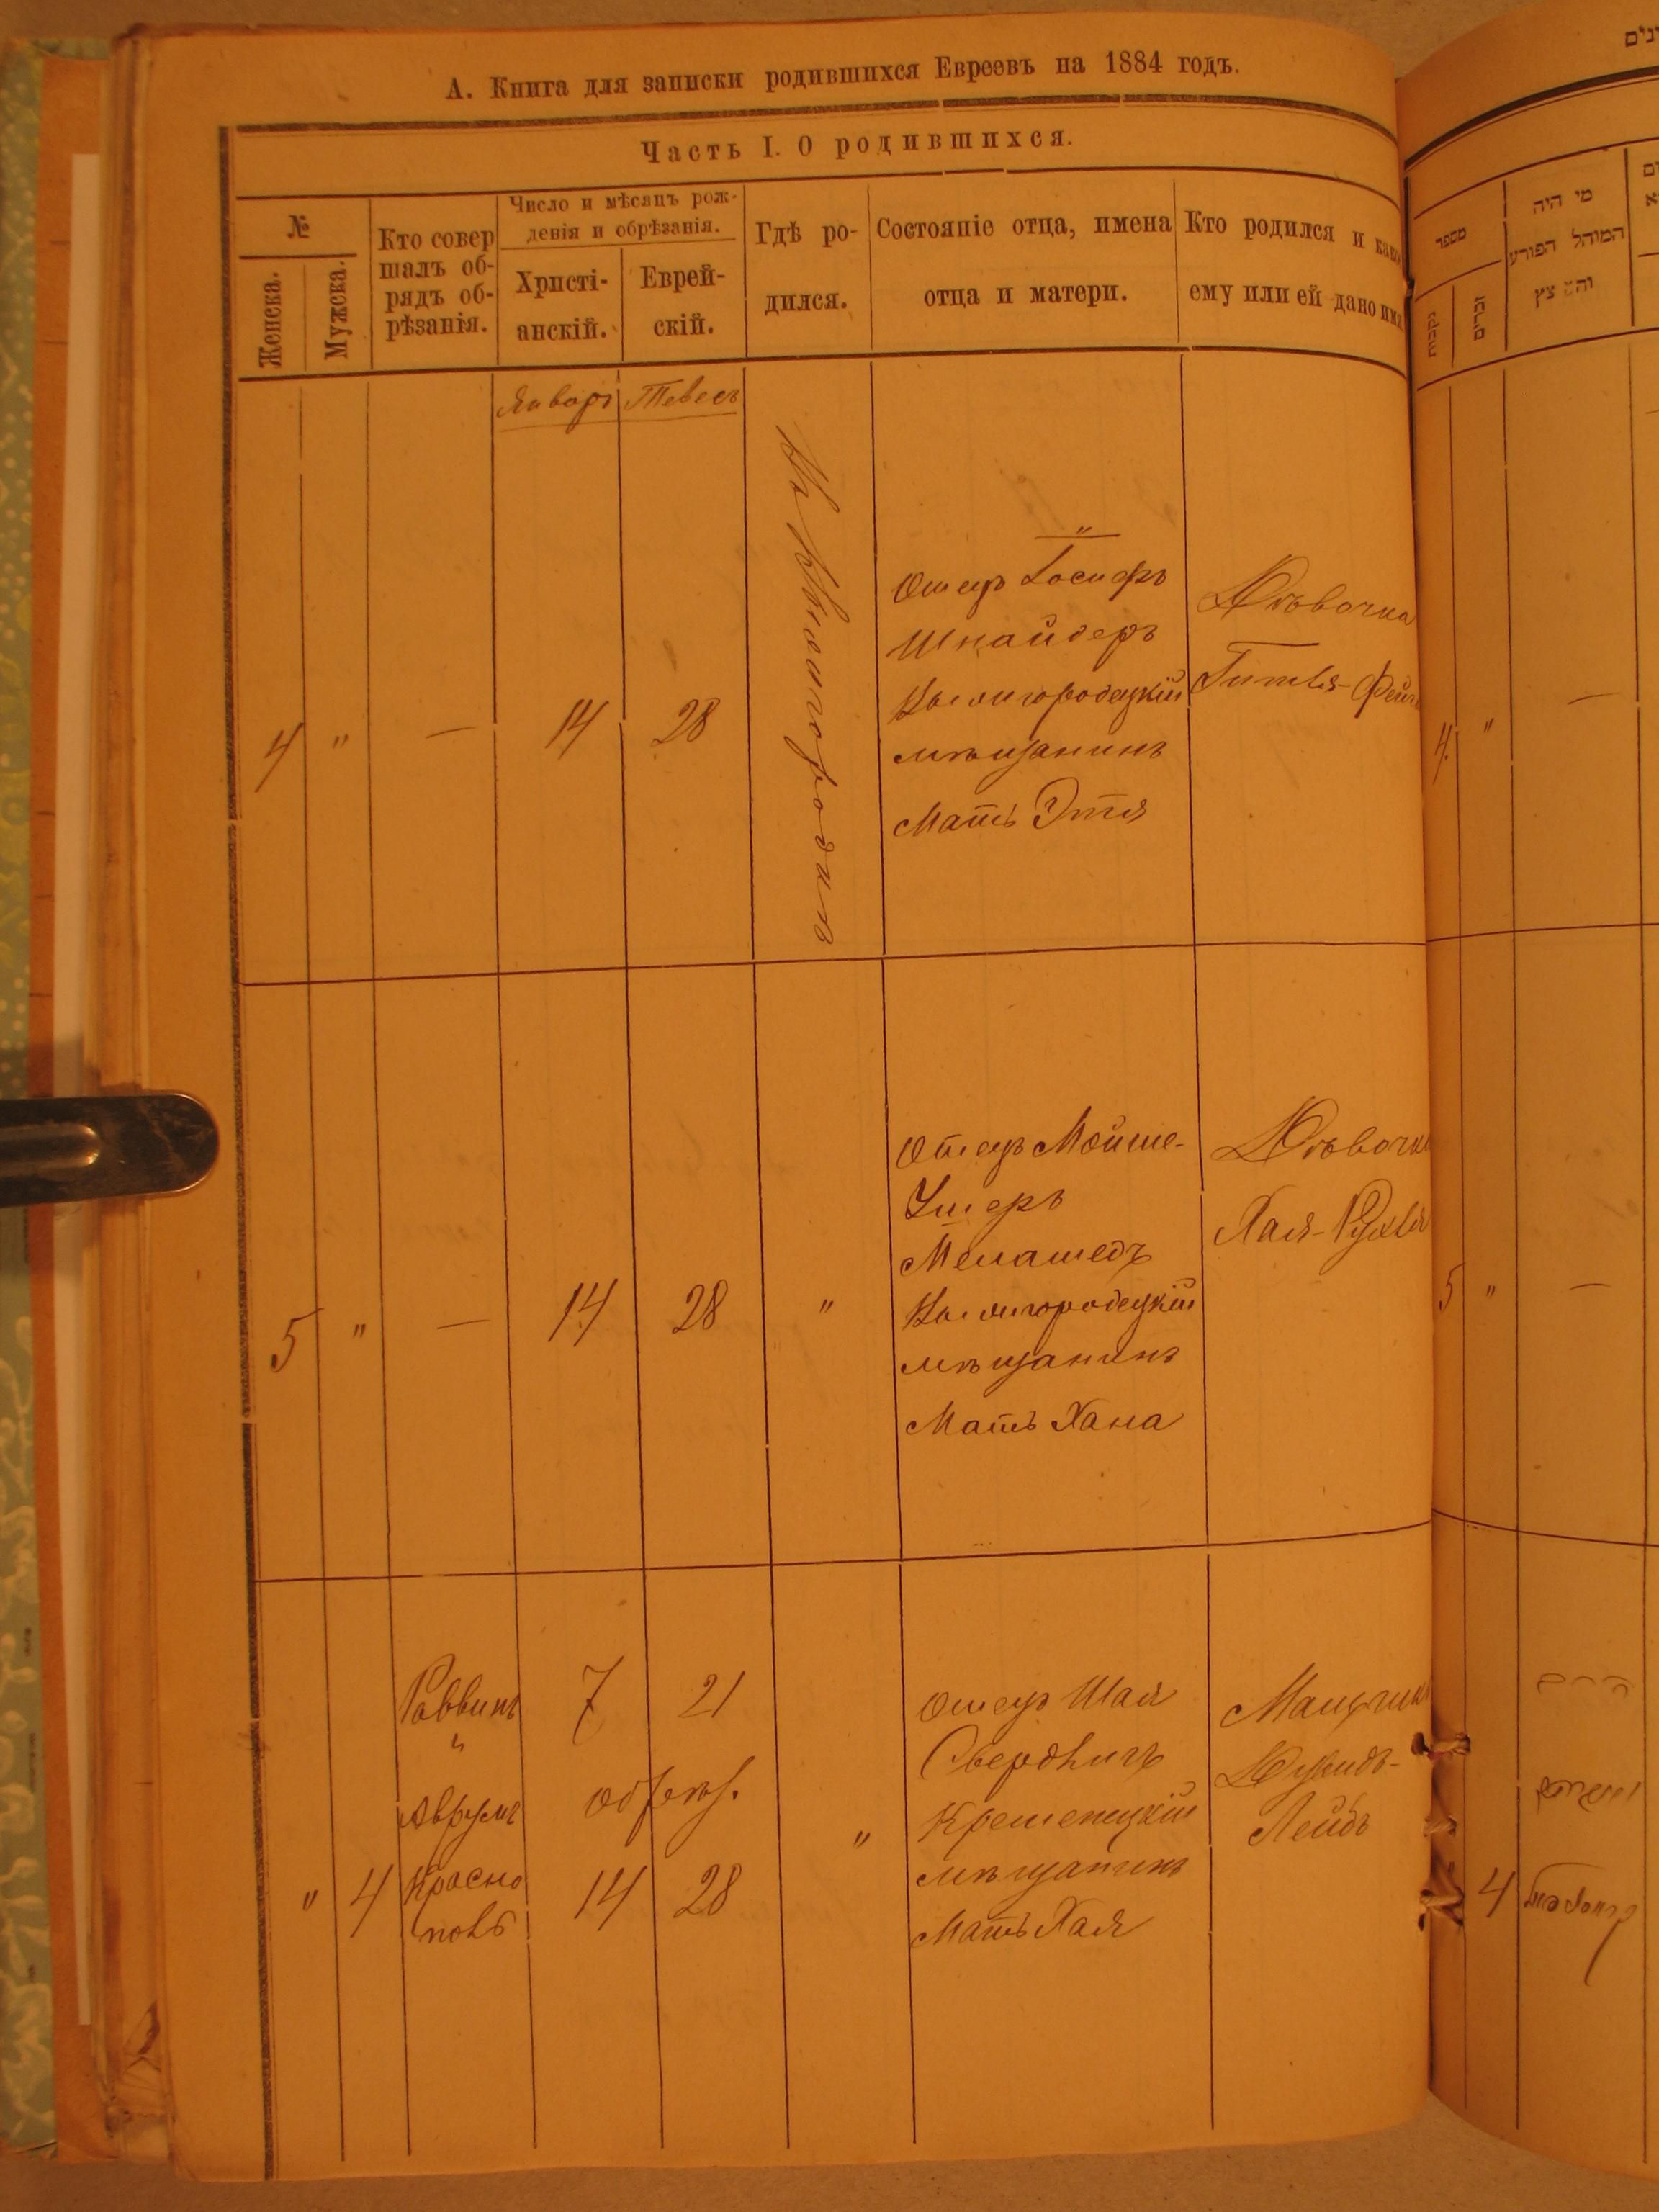 А. Книга для записки родившихся Евреевъ на 1884 годъ.
Часть I. О родившихся.
№
Женска.
Мужска.
Кто совер
шалъ об-
рядъ об-
рѣзанія.
Число и мѣсяцъ рож-
денія и обрѣзанія.
Христі-
анскій.
Еврей-
скій.
Гдѣ ро-
дился.
Состояніе отца, имена
отца и матери.
Кто родился и како
ему или ей дано имя
Январь Тевесъ
4 " — 14 28
Въ Вышгородкѣ
"
Отецъ Іосифъ
Шнайдеръ
Вышгородецкій
мѣщанинъ
Мать Этя
Дѣвочка
Гитля-Фейга
5 " — 14 28 "
Отецъ Мойше-
Ушеръ
Меламедъ
Вышгородецкій
мѣщанинъ
Мать Хана
Дѣвочка
Хая-Рухля
" 4
Раввинъ
"
Аврумъ
Красно
полъ
7 21
обрѣз.
14 28
"
Отецъ Шая
Свердликъ
Кременецкій
мѣщанинъ
Мать Хая
Мальчикъ
Дувидъ-
Лейбъ
מספר
נקבות
זכרים
מי היה
המוהל הפורע
והמצץ
4 " —
5 " —
4